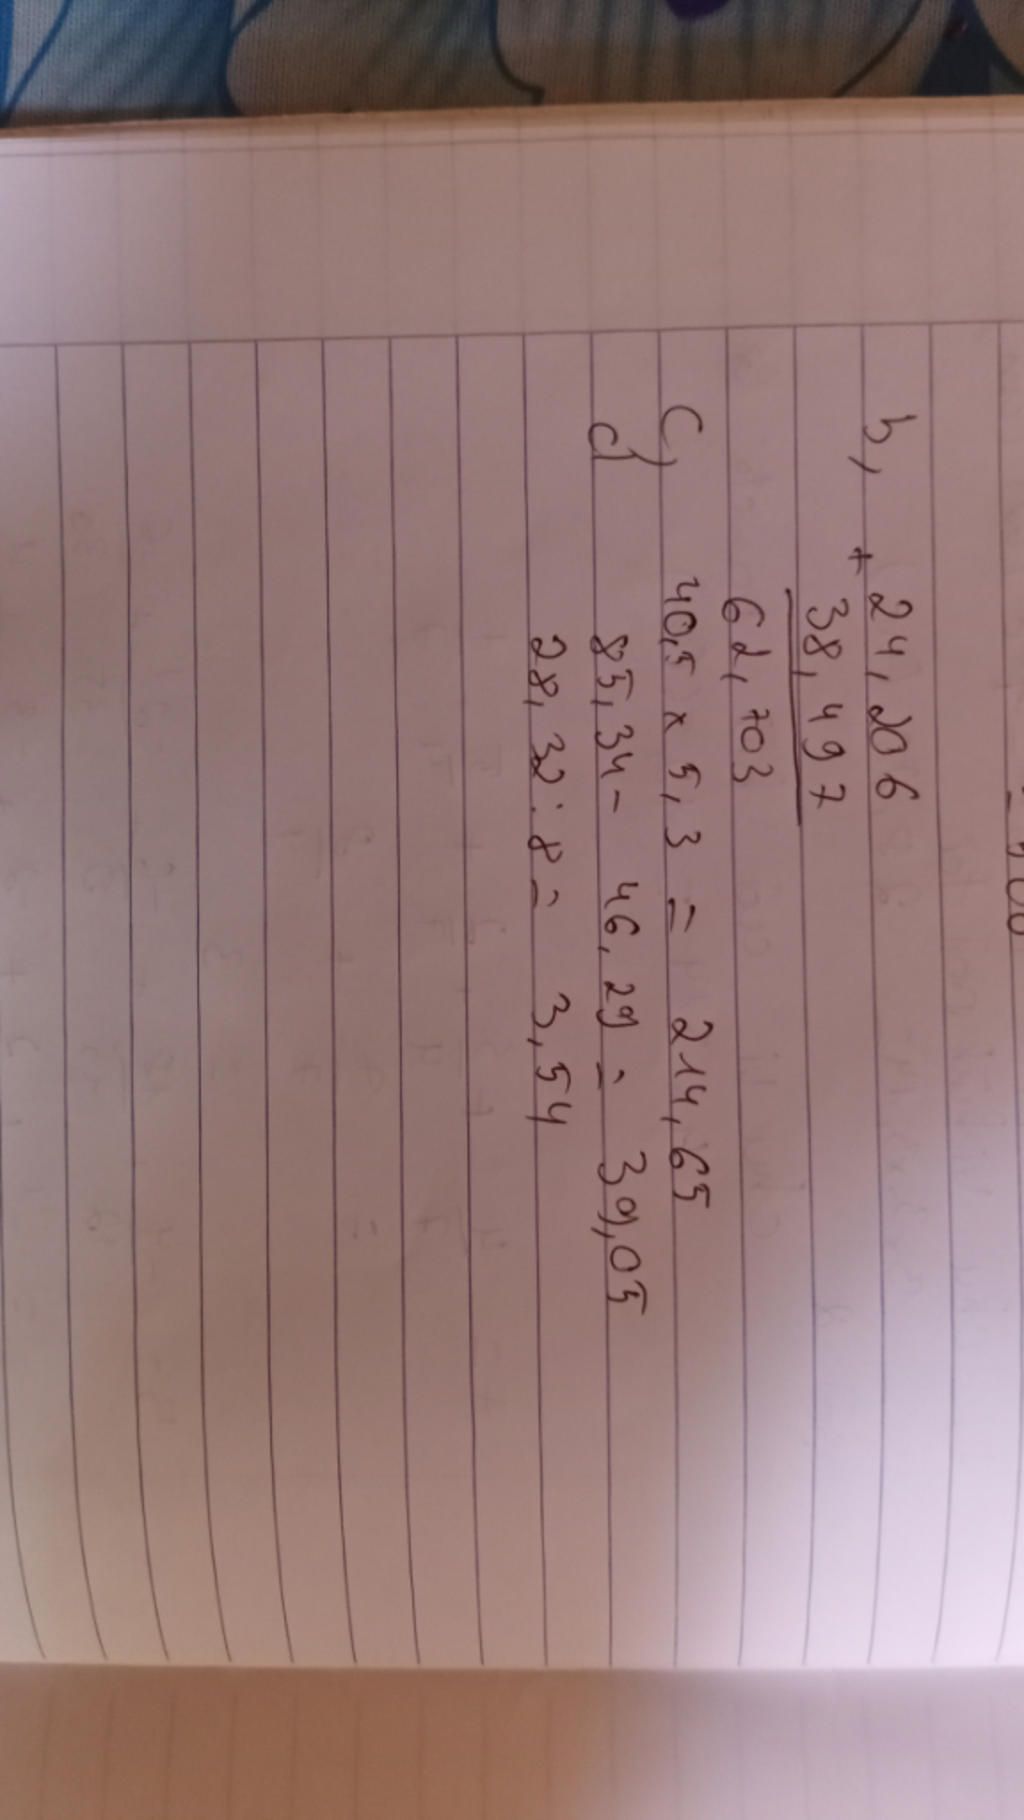 b, + 24,206
38,497
62,703
c, 40,5 x 5,3 = 214,65
d) 85,34 - 46,29 = 39,05
28,32 : 8 = 3,54